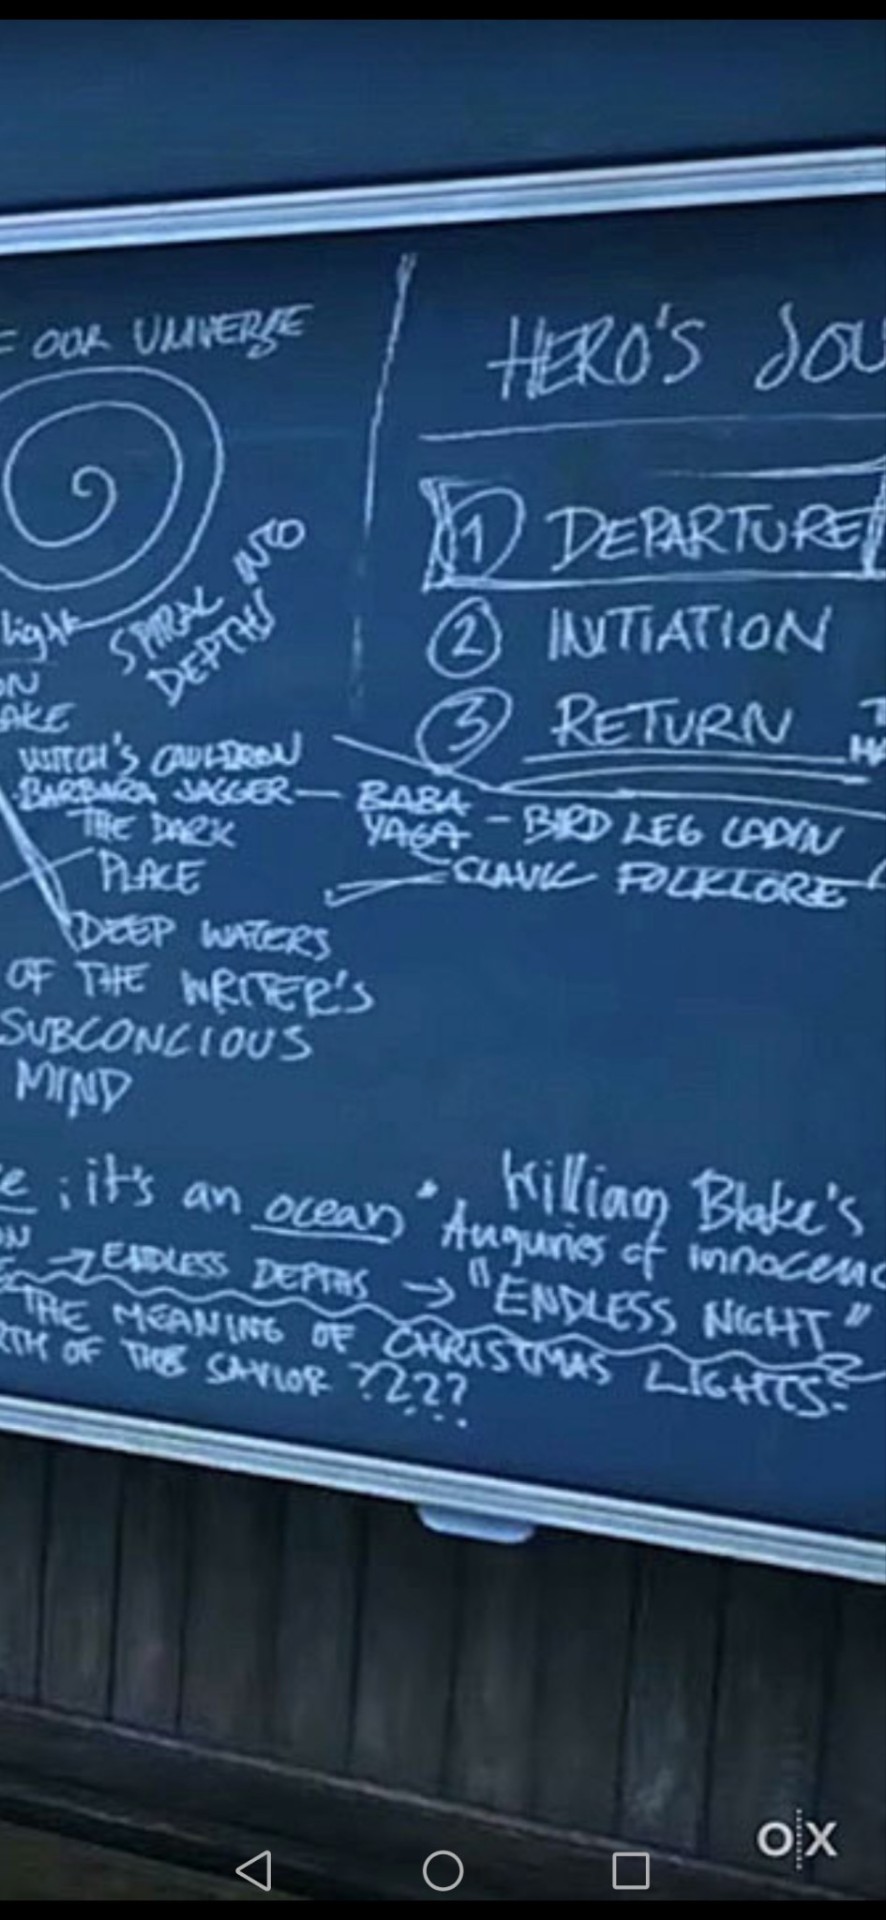 = OUR UNIVERSE
light
SPIRAL INTO
DEPTHS
ON
AKE
WITCH'S CAULDRON
BARBARA JAGGER — BABA
YAGA - BIRD LEG CABIN
SLAVIC FOLKLORE
THE DARK
PLACE
DEEP WATERS
OF THE WRITER'S
SUBCONCIOUS
MIND
HERO'S JOU
1 DEPARTURE
2 INITIATION
3 RETURN
e ; it's an ocean"
ON
→ ENDLESS DEPTHS →
William Blake's
Auguries of innocenc
"ENDLESS NIGHT"
THE MEANING OF CHRISTMAS LIGHTS?
RTH OF THE SAVIOR ????
O X